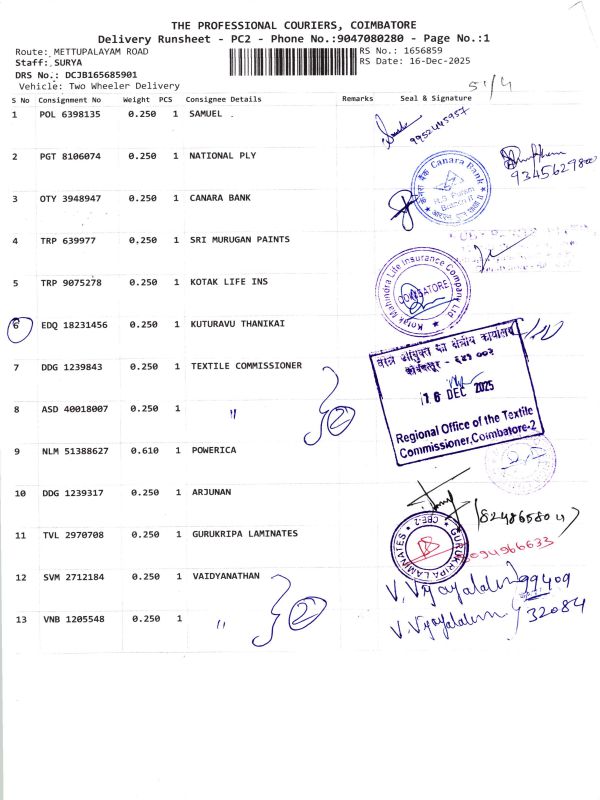 THE PROFESSIONAL COURIERS, COIMBATORE
Delivery Runsheet - PC2 - Phone No.:9047080280 - Page No.:1
Route: METTUPALAYAM ROAD RS No.: 1656859
Staff: SURYA RS Date: 16-Dec-2025
DRS No.: DCJB165685901
Vehicle: Two Wheeler Delivery
S No Consignment No Weight PCS Consignee Details Remarks Seal & Signature
1 POL 6398135 0.250 1 SAMUEL
9952445957
2 PGT 8106074 0.250 1 NATIONAL PLY
Canara Bank
केनरा बैंक
R.S. Puram
3 OTY 3948947 0.250 1 CANARA BANK
4 TRP 639977 0.250 1 SRI MURUGAN PAINTS
5 TRP 9075278 0.250 1 KOTAK LIFE INS
Kotak Mahindra Life Insurance Company Ltd.
COIMBATORE
6 EDQ 18231456 0.250 1 KUTURAVU THANIKAI
वस्त्र आयुक्त का क्षेत्रीय कार्यालय
कोयंबत्तूर - ६४१ ००२
7 DDG 1239843 0.250 1 TEXTILE COMMISSIONER
16 DEC 2025
8 ASD 40018007 0.250 1 〃 2
Regional Office of the Textile
Commissioner, Coimbatore-2
9 NLM 51388627 0.610 1 POWERICA
10 DDG 1239317 0.250 1 ARJUNAN
11 TVL 2970708 0.250 1 GURUKRIPA LAMINATES
GURUKRIPA LAMINATES
CBE-2
12 SVM 2712184 0.250 1 VAIDYANATHAN
99409
13 VNB 1205548 0.250 1 〃 2
32084